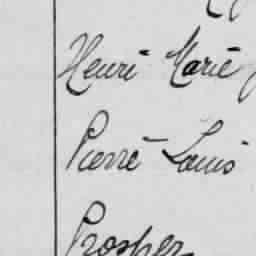 Henri Marie
Pierre Louis
Prosper